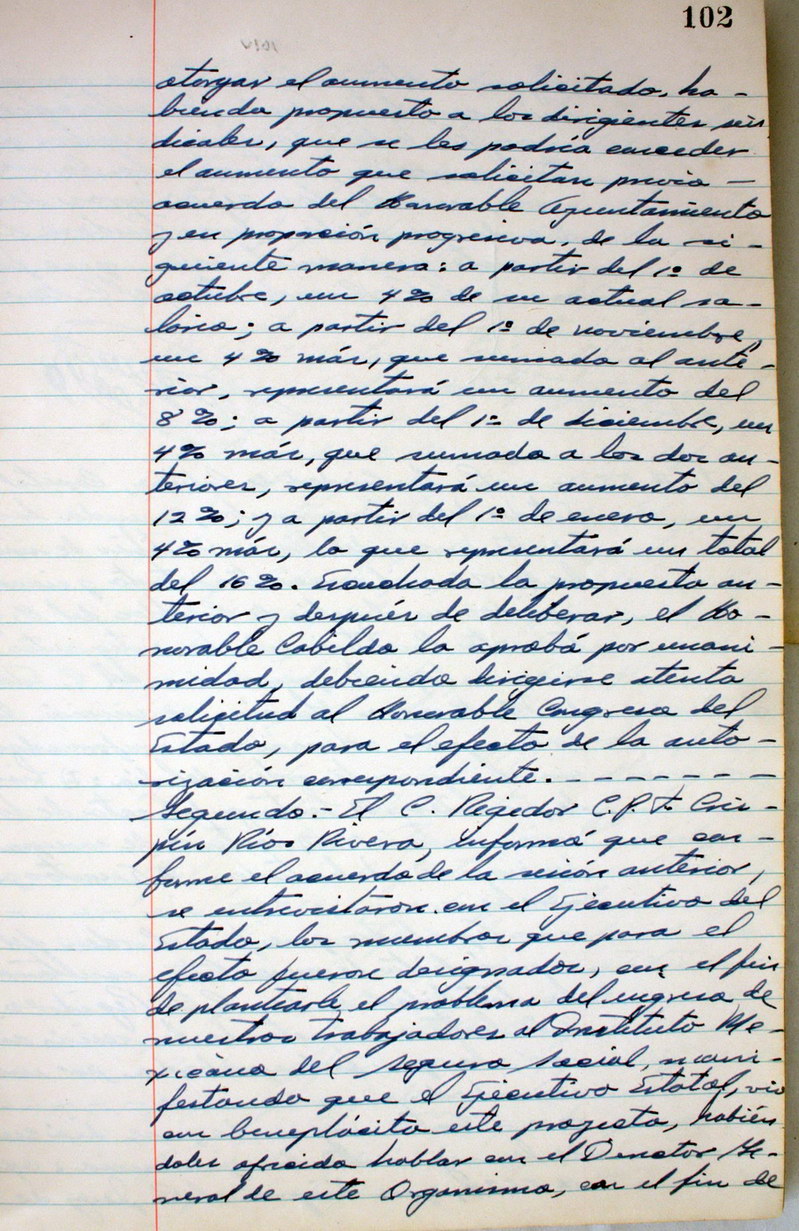 102
otorgar el aumento solicitado, ha-
biendo propuesto a los dirigentes sin
dicales, que se les podría conceder
el aumento que solicitan previo -
acuerdo del Honorable Ayuntamiento
y en proporción progresiva, de la si-
guiente manera: a partir del 1o. de
octubre, un 4% de su actual sa-
lario; a partir del 1o. de noviembre,
un 4% más, que sumado al ante-
rior, representará un aumento del
8%; a partir del 1o. de diciembre, un
4% más, que sumado a los dos an-
teriores, representará un aumento del
12%; y a partir del 1o. de enero, un
4% más, lo que representará un total
del 16%. Escuchada la propuesta an-
terior y después de deliberar, el Ho-
norable Cabildo la aprobó por unani-
midad, debiendo dirigirse atenta
solicitud al Honorable Congreso del
Estado, para el efecto de la auto-
rización correspondiente. - - - - - - -
Segundo.- El C. Regidor C.P.T. Cris-
pín Ríos Rivera, informó que con-
forme el acuerdo de la sesión anterior,
se entrevistaron con el Ejecutivo del
Estado, los miembros que para el
efecto fueron designados, con el fin
de plantearle el problema del ingreso de
nuestros trabajadores al Instituto Me-
xicano del Seguro Social, mani-
festando que el Ejecutivo Estatal, vio
con beneplácito este proyecto, habién
doles ofrecido hablar con el Director Ge-
neral de este Organismo, con el fin de